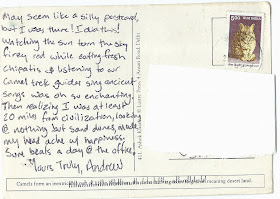 May seem like a silly postcard,
but I was there! I did this!
Watching the sun torn the sky
firey red while eating fresh
chipatis & listening to our
Camel trek guides sing ancient
songs was oh so enchanting.
Then realizing I was at least
20 miles from civilization, looking
@ nothing but sand dunes, made
my head ache w/ happiness.
Sure beats a day @ the office.
Yours Truly, Andrew
5.00
Camels form an
desert land.